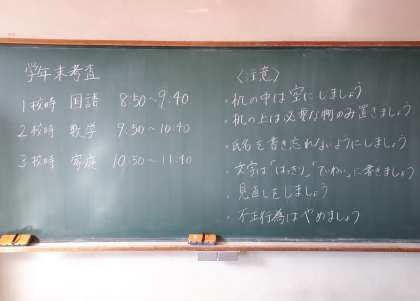 学年末考査
1校時 国語 8:50〜9:40
2校時 数学 9:50〜10:40
3校時 家庭 10:50〜11:40
〈注意〉
・机の中は空にしましょう
・机の上は必要な物のみ置きましょう
・氏名を書き忘れないようにしましょう
・文字は「はっきり」「ていねい」に書きましょう
・見直しをしましょう
・不正行為はやめましょう